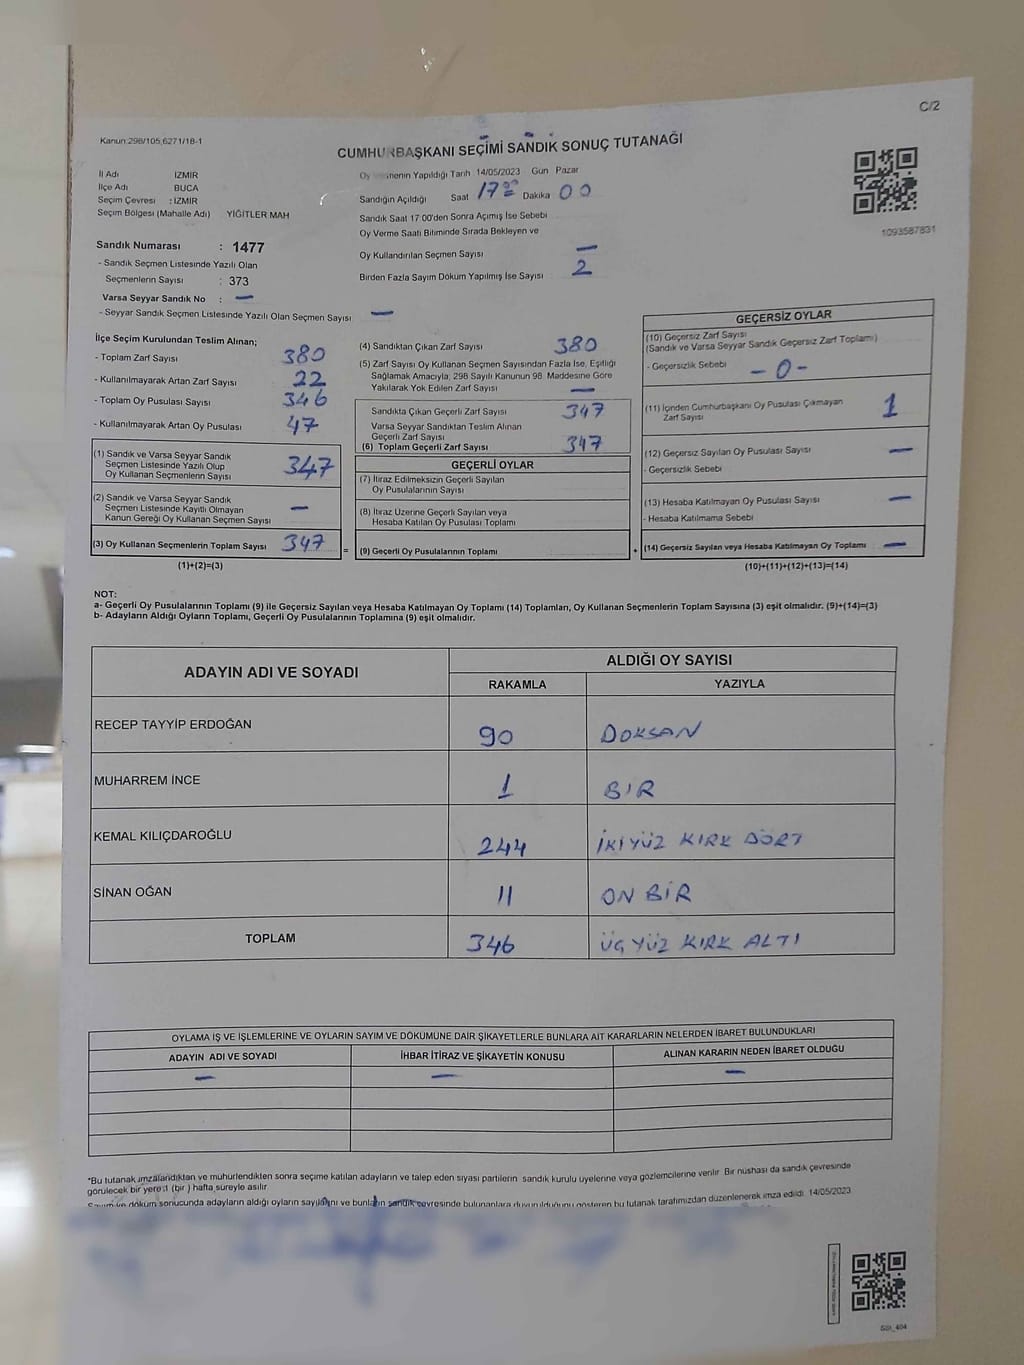 C/2
Kanun:298/105,6271/18-1
CUMHURBAŞKANI SEÇİMİ SANDIK SONUÇ TUTANAĞI
İl Adı İZMİR
İlçe Adı BUCA
Seçim Çevresi : İZMİR
Seçim Bölgesi (Mahalle Adı) YİĞİTLER MAH
Oy Vermenin Yapıldığı Tarih 14/05/2023 Gün Pazar
Sandığın Açıldığı Saat 17 Dakika 00
Sandık Saat 17:00'den Sonra Açımış İse Sebebi
Oy Verme Saati Bitiminde Sırada Bekleyen ve
Oy Kullandırılan Seçmen Sayısı —
Birden Fazla Sayım Döküm Yapılmış İse Sayısı 2
1093587831
Sandık Numarası : 1477
- Sandık Seçmen Listesinde Yazılı Olan
Seçmenlerin Sayısı : 373
Varsa Seyyar Sandık No : —
- Seyyar Sandık Seçmen Listesinde Yazılı Olan Seçmen Sayısı —
İlçe Seçim Kurulundan Teslim Alınan;
- Toplam Zarf Sayısı 380
- Kullanılmayarak Artan Zarf Sayısı 22
- Toplam Oy Pusulası Sayısı 346
- Kullanılmayarak Artan Oy Pusulası 47
(1) Sandık ve Varsa Seyyar Sandık
Seçmen Listesinde Yazılı Olup
Oy Kullanan Seçmenlerin Sayısı 347
(2) Sandık ve Varsa Seyyar Sandık
Seçmen Listesinde Kayıtlı Olmayan
Kanun Gereği Oy Kullanan Seçmen Sayısı —
(3) Oy Kullanan Seçmenlerin Toplam Sayısı 347
(1)+(2)=(3)
(4) Sandıktan Çıkan Zarf Sayısı 380
(5) Zarf Sayısı Oy Kullanan Seçmen Sayısından Fazla İse, Eşitliği
Sağlamak Amacıyla, 298 Sayılı Kanunun 98. Maddesine Göre
Yakılarak Yok Edilen Zarf Sayısı —
Sandıkta Çıkan Geçerli Zarf Sayısı 347
Varsa Seyyar Sandıktan Teslim Alınan
Geçerli Zarf Sayısı
(6) Toplam Geçerli Zarf Sayısı 347
GEÇERLİ OYLAR
(7) İtiraz Edilmeksizin Geçerli Sayılan
Oy Pusulalarının Sayısı
(8) İtiraz Üzerine Geçerli Sayılan veya
Hesaba Katılan Oy Pusulası Toplamı
= (9) Geçerli Oy Pusulalarının Toplamı +
GEÇERSİZ OYLAR
(10) Geçersiz Zarf Sayısı
(Sandık ve Varsa Seyyar Sandık Geçersiz Zarf Toplamı)
- Geçersizlik Sebebi -0-
(11) İçinden Cumhurbaşkanı Oy Pusulası Çıkmayan
Zarf Sayısı 1
(12) Geçersiz Sayılan Oy Pusulası Sayısı —
- Geçersizlik Sebebi
(13) Hesaba Katılmayan Oy Pusulası Sayısı —
- Hesaba Katılmama Sebebi
(14) Geçersiz Sayılan veya Hesaba Katılmayan Oy Toplamı —
(10)+(11)+(12)+(13)=(14)
NOT:
a- Geçerli Oy Pusulalarının Toplamı (9) ile Geçersiz Sayılan veya Hesaba Katılmayan Oy Toplamı (14) Toplamları, Oy Kullanan Seçmenlerin Toplam Sayısına (3) eşit olmalıdır. (9)+(14)=(3)
b- Adayların Aldığı Oyların Toplamı, Geçerli Oy Pusulalarının Toplamına (9) eşit olmalıdır.
ADAYIN ADI VE SOYADI
ALDIĞI OY SAYISI
RAKAMLA YAZIYLA
RECEP TAYYİP ERDOĞAN 90 DOKSAN
MUHARREM İNCE 1 BİR
KEMAL KILIÇDAROĞLU 244 İKİYÜZ KIRK DÖRT
SİNAN OĞAN 11 ON BİR
TOPLAM 346 ÜÇ YÜZ KIRK ALTI
OYLAMA İŞ VE İŞLEMLERİNE VE OYLARIN SAYIM VE DÖKÜMÜNE DAİR ŞİKAYETLERLE BUNLARA AİT KARARLARIN NELERDEN İBARET BULUNDUKLARI
ADAYIN ADI VE SOYADI İHBAR İTİRAZ VE ŞİKAYETİN KONUSU ALINAN KARARIN NEDEN İBARET OLDUĞU
— — —
*Bu tutanak imzalandıktan ve mühürlendikten sonra seçime katılan adayların ve talep eden siyasi partilerin sandık kurulu üyelerine veya gözlemcilerine verilir. Bir nüshası da sandık çevresinde
görülecek bir yere 1 (bir ) hafta süreyle asılır.
Sayım ve döküm sonucunda adayların aldığı oyların sayılarını ve bunların sandık çevresinde bulunanlara duyurulduğunu gösteren bu tutanak tarafımızdan düzenlenerek imza edildi. 14/05/2023